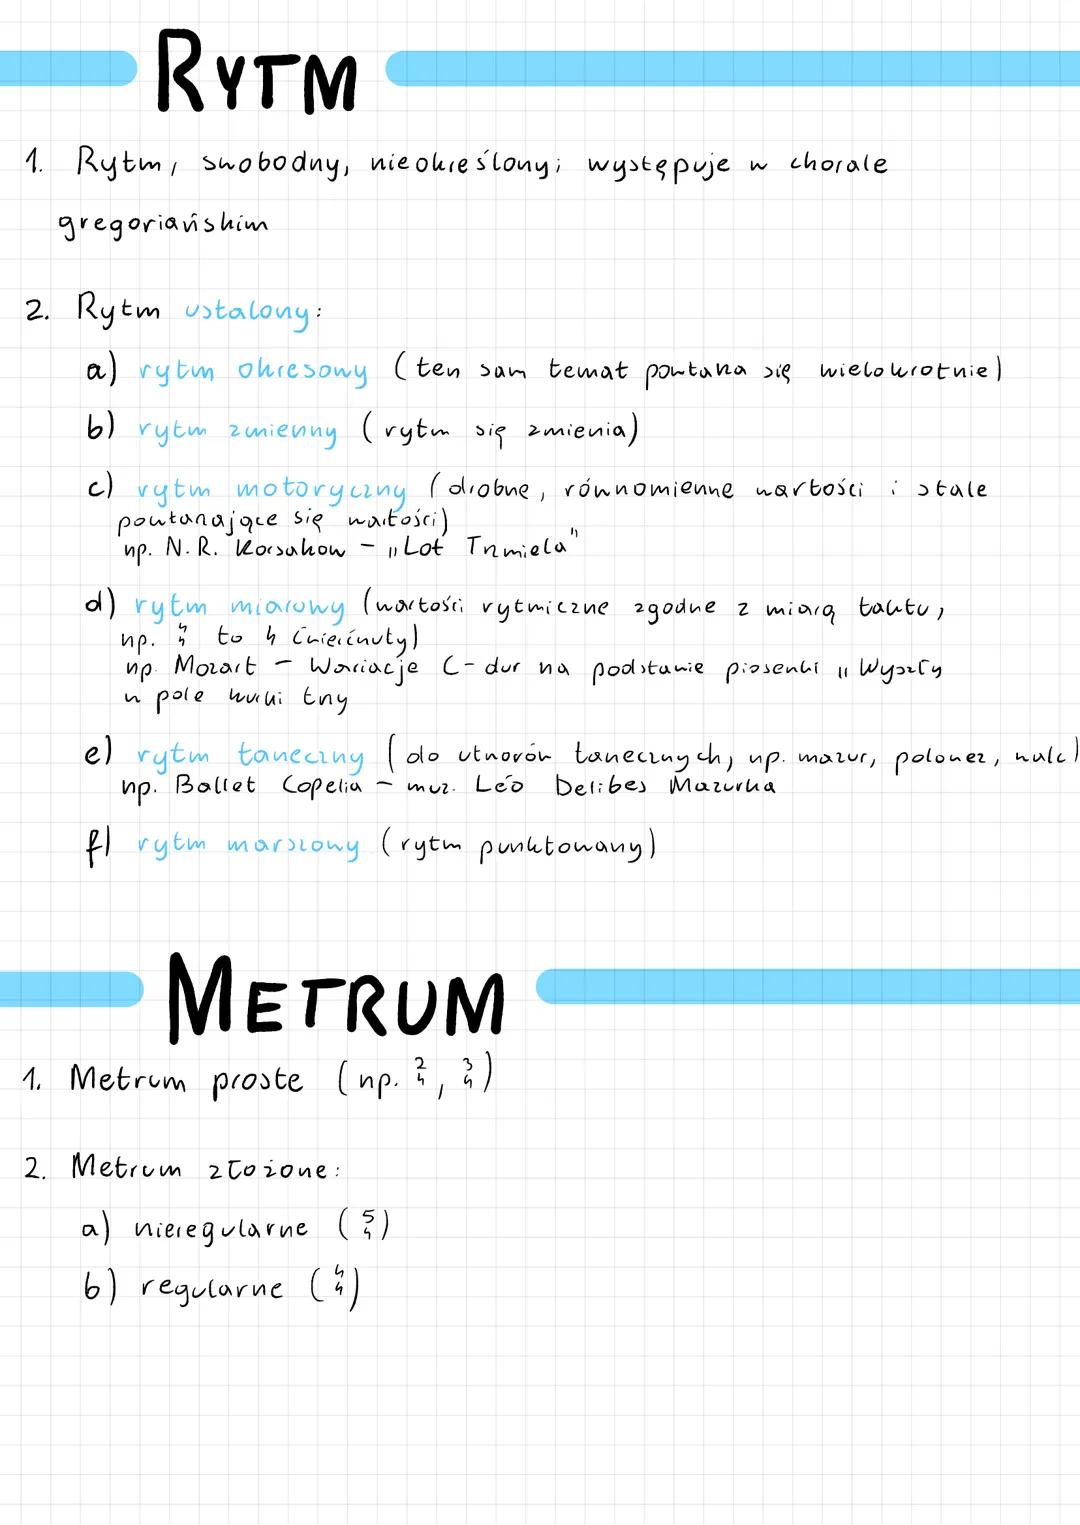 RYTM
1. Rytm, swobodny, nieokreślony; występuje w chorale
gregoriańskim
2. Rytm ustalony:
a) rytm okresowy (ten sam temat powtarza się wielokrotnie)
b) rytm zmienny (rytm się zmienia)
c) rytm motoryczny (drobne, równomierne wartości i stale
powtarzające się wartości)
np. N. R. Korsakow - „Lot Trzmiela"
d) rytm miarowy (wartości rytmiczne zgodne z miarą taktu,
np. 4/4 to 4 ćwierćnuty)
np. Mozart - Wariacje C-dur na podstawie piosenki „Wyszły
w pole kurki trzy
e) rytm taneczny (do utworów tanecznych, np. mazur, polonez, walc)
np. Ballet Copelia - muz. Léo Delibes Mazurka
f) rytm marszowy (rytm punktowany)
METRUM
1. Metrum proste (np. 2/4, 3/4)
2. Metrum złożone:
a) nieregularne (5/4)
b) regularne (4/4)